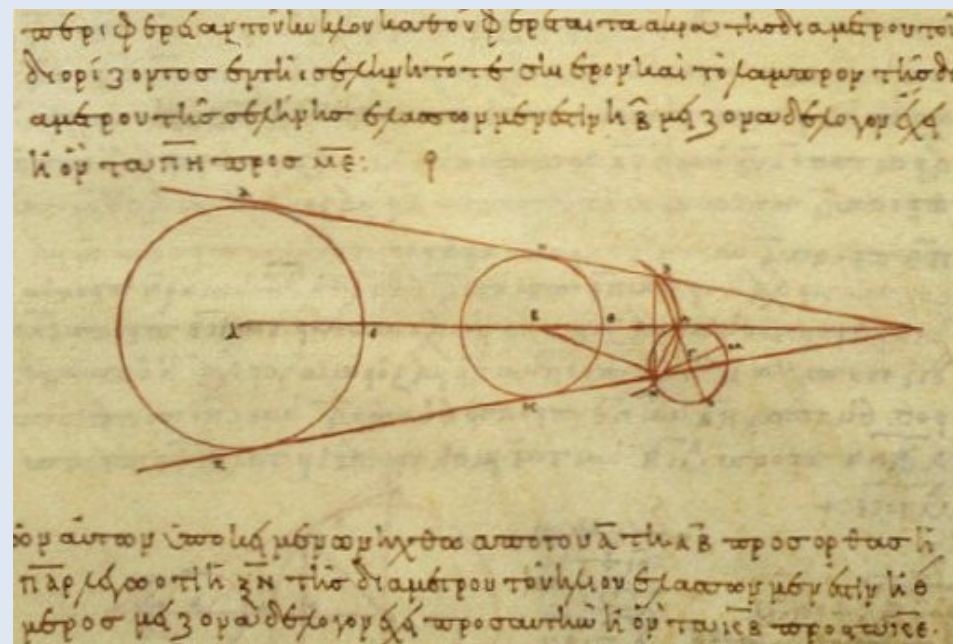 τὸν κύκλον καθ' ὃν φέρεται τὰ ἄκρα τῆς διαμέτρου τοῦ
διορίζοντος ἐν τῆι σελήνηι τό τε σκιερὸν καὶ τὸ λαμπρὸν τῆς δι
αμέτρου τῆς σελήνης ἐλάσσων μέν ἐστιν ἢ β̄ μείζονα δὲ λόγον ἔχει
ἢ ὃν τὰ π̄η̄ πρὸς μ̄ε̄:
αὐτῶν ὑποκειμένων ἤχθω ἀπὸ τοῦ Ᾱ τῆι Α̅Β̅ πρὸς ὀρθὰς ἡ
Π̅Α̅Ρ̅ λέγω ὅτι ἡ Ξ̅Ν̅ τῆς διαμέτρου τοῦ ἡλίου ἐλάσσων μέν ἐστιν ἢ θ
μέρος μείζονα δὲ λόγον ἔχει πρὸς αὐτὴν ἢ ὃν τὰ